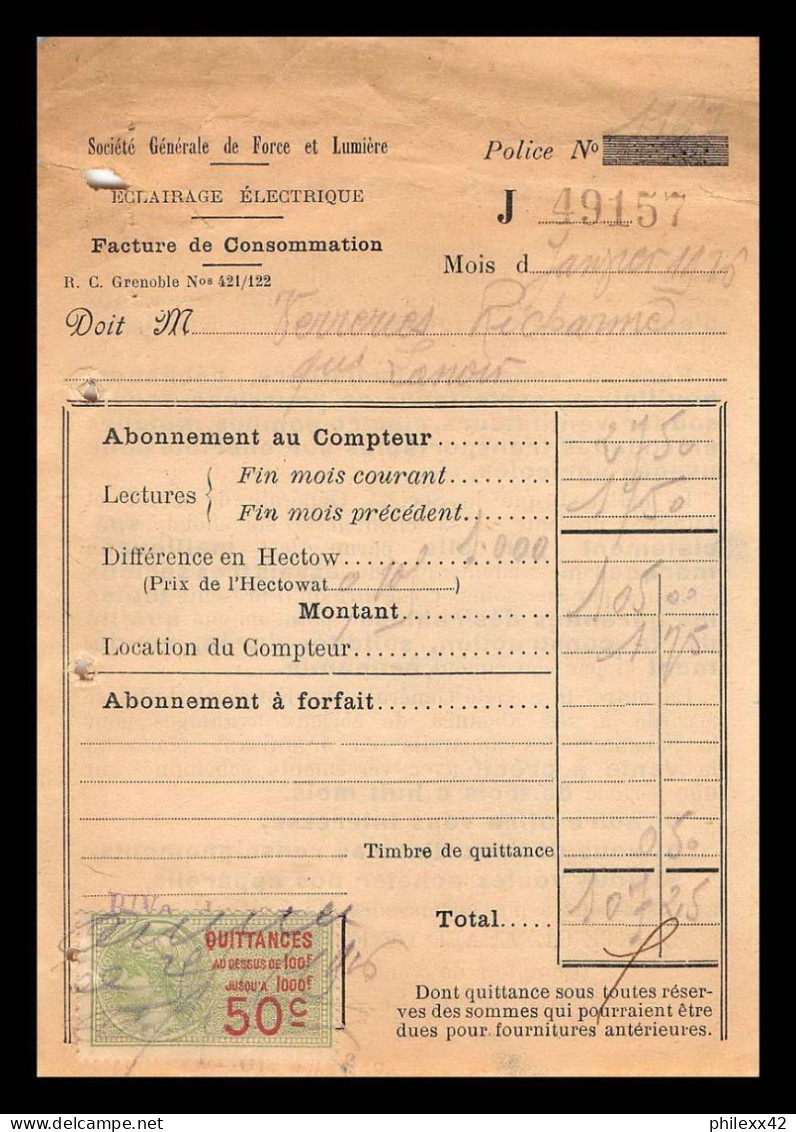 Société Générale de Force et Lumière
ECLAIRAGE ÉLECTRIQUE
Facture de Consommation
R. C. Grenoble Nos 421/122
Police No 1167
J 49157
Mois d Janvier 1926
Doit M Verreries Richarme
quai
Abonnement au Compteur
Lectures { Fin mois courant 2750
Fin mois précédent 1750
Différence en Hectow 1.000
(Prix de l'Hectowat )
Montant 105 00
Location du Compteur 1 75
Abonnement à forfait
Timbre de quittance 0 50
Total 107 25
QUITTANCES
AU DESSUS DE 100F
JUSQU'A 1000F
50c
Dont quittance sous toutes réser-
ves des sommes qui pourraient être
dues pour fournitures antérieures.
philexx42